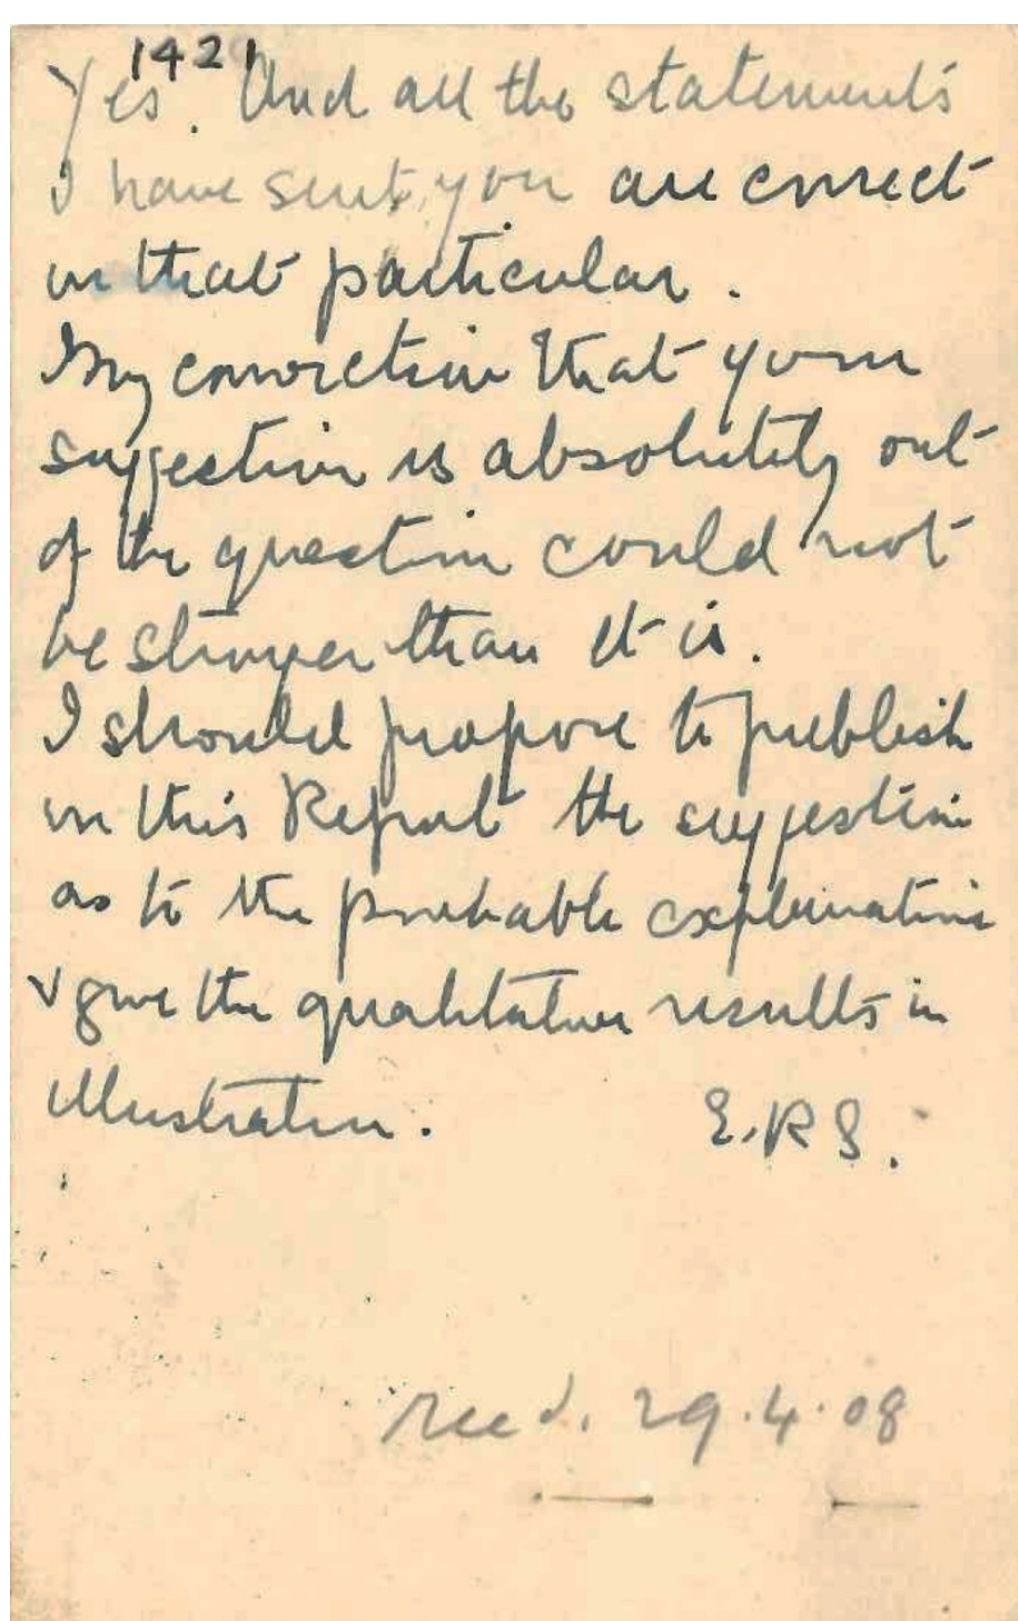 1421
Yes. And all the statements
I have sent you are correct
in that particular.
My conviction that your
suggestion is absolutely out
of the question could not
be stronger than it is.
I should propose to publish
in this Report the suggestion
as to the probable explanation
& give the qualitative results in
illustration. E.R.S.
Recd. 29.4.08